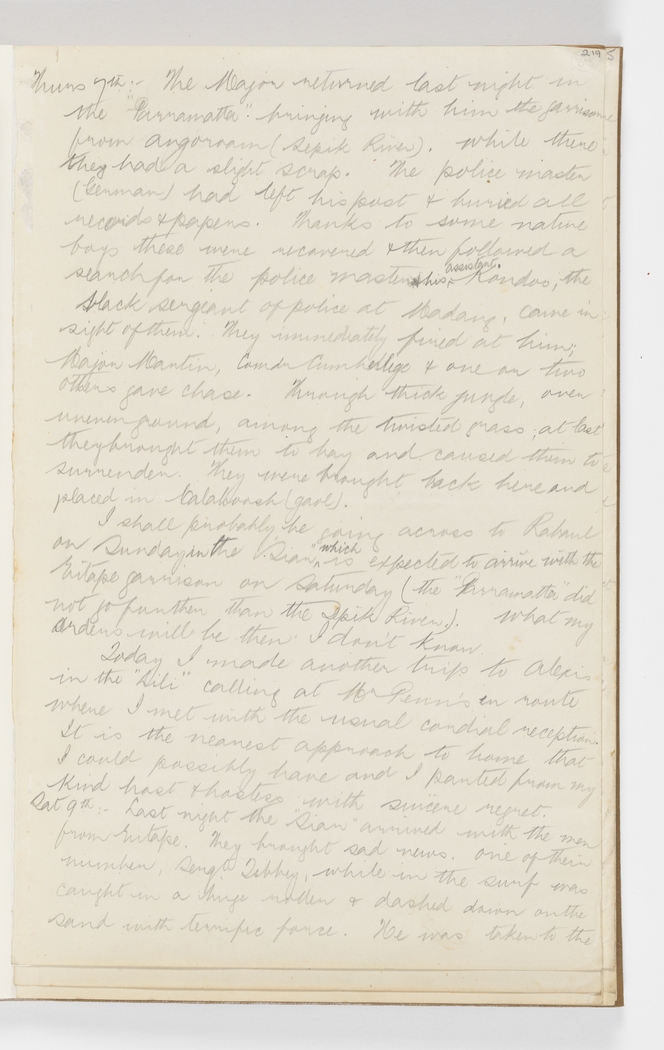 219 5
Thurs 7th:- The Major returned last night in
the "Parramatta" bringing with him the garrison
from Angoroam (Sepik River). While there
they had a slight scrap. The police master
(German) had left his post & buried all
records & papers. Thanks to some native
boys these were recovered & then followed a
search for the police master & his assistant. Kondos, the
black sergeant of police at Madang, came in
sight of them. They immediately fired at him;
Major Martin, Comdr Cumberlege & one or two
others gave chase. Through thick jungle, over
uneven ground, among the twisted grass, at last
they brought them to bay and caused them to
surrender. They were brought back here and
placed in Calaboosh (gaol).
I shall probably be going across to Rabaul
on Sunday in the "Siar", which is expected to arrive with the
Eitape garrison on Saturday (the "Parramatta" did
not go further than the Sepik River). What my
orders will be then I don't know.
Today I made another trip to Alexis
in the "Lili" calling at Mr Penn's en route
where I met with the usual cordial reception.
It is the nearest approach to home that
I could possibly have and I parted from my
kind host & hostess with sincere regret.
Sat 9th:- Last night the "Siar" arrived with the men
from Eitape. They brought sad news. One of their
number, Sergt Tebbey, while in the surf was
caught in a huge roller & dashed down on the
sand with terrific force. He was taken to the